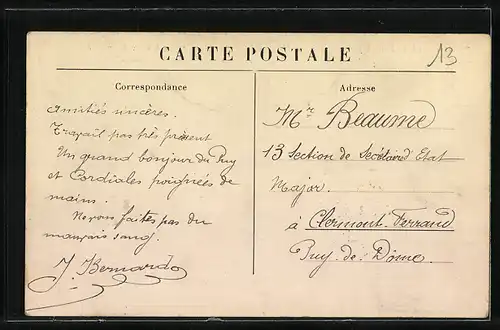 CARTE POSTALE
13
Correspondance
Amitiés sincères.
Travail pas très présent
Un grand bonjour du Puy
et Cordiales poignées de
mains.
Ne vous faites pas du
mauvais sang.
J. Bernardo
Adresse
Mr Beaume
13 Section de Secétaire d Etat
Major.
à Clermont-Ferrand
Puy-de-Dôme.